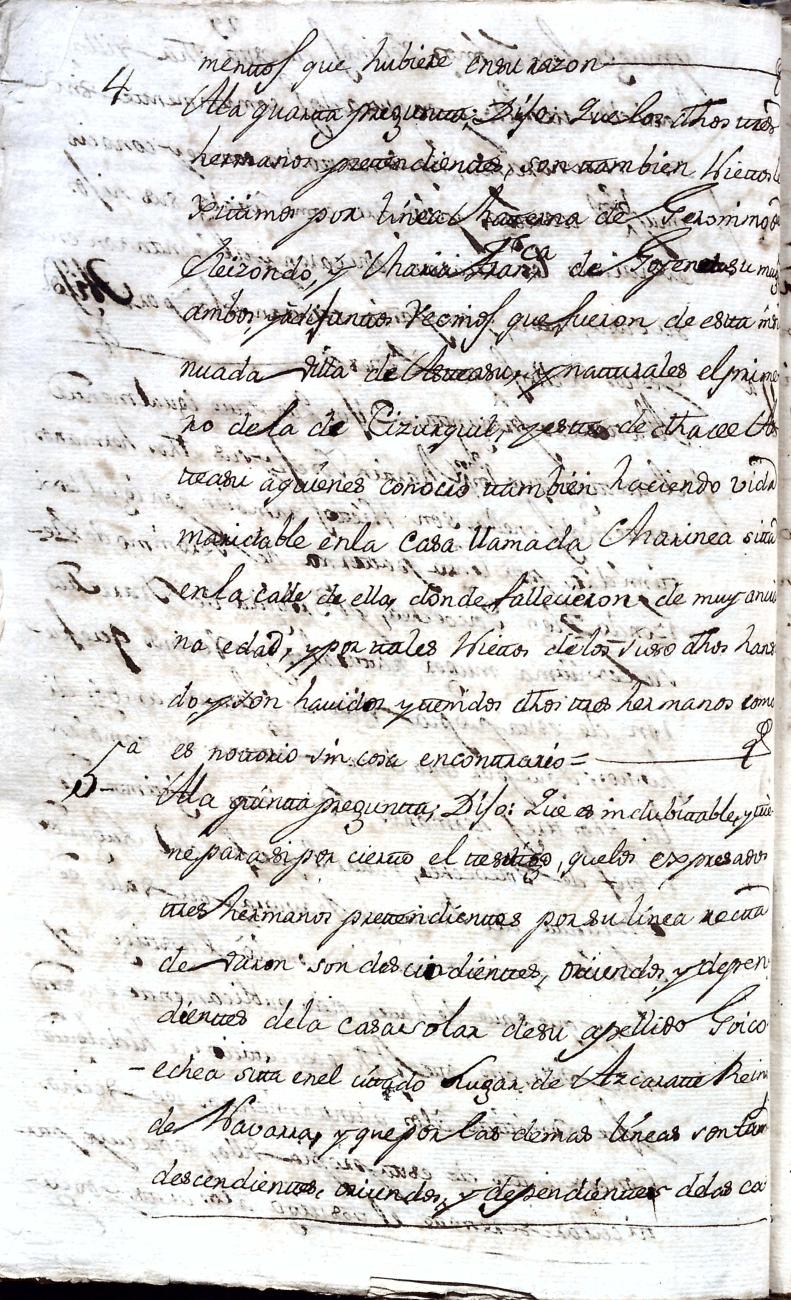 mentos que hubiere en su razon
4 A la quarta pregunta; Dijo: Que los dhos tres
hermanos pretendientes, son tambien Nietos le
xitimos por linea Materna de Geronimo de
Elizondo, y Maria Franca de Goyenechesu mug
ambos, ya difuntos Vecinos que fueron de esta insi
nuada villa de Asteasu, y naturales el prime
ro de la de Cizurquil, y esta de dha de As
teasu aquienes conocio tambien haciendo vida
maridable enla Casa llamada Marinea sitta
en la calle de ella, donde fallecieron de muy ancia
na edad, y por tales Nietos delos suso dhos han si
do y son havidos y tenidos dhos tres hermanos como
es nottorio sin cosa encontrario =
5a A la quinta pregunta; Dijo: Que es indubitable, y tie
ne para si por cierto el testigo, quelos expresados
tres hermanos pretendientes por su linea recta
de varon son descendientes, oriundos, y depen
dientes dela casa solar desu apellido Goico
echea sita enel citado Lugar de Azcarate Reino
de Navarra, y que por las demas lineas son tam
descendientes, oriundos, y dependientes delas ca